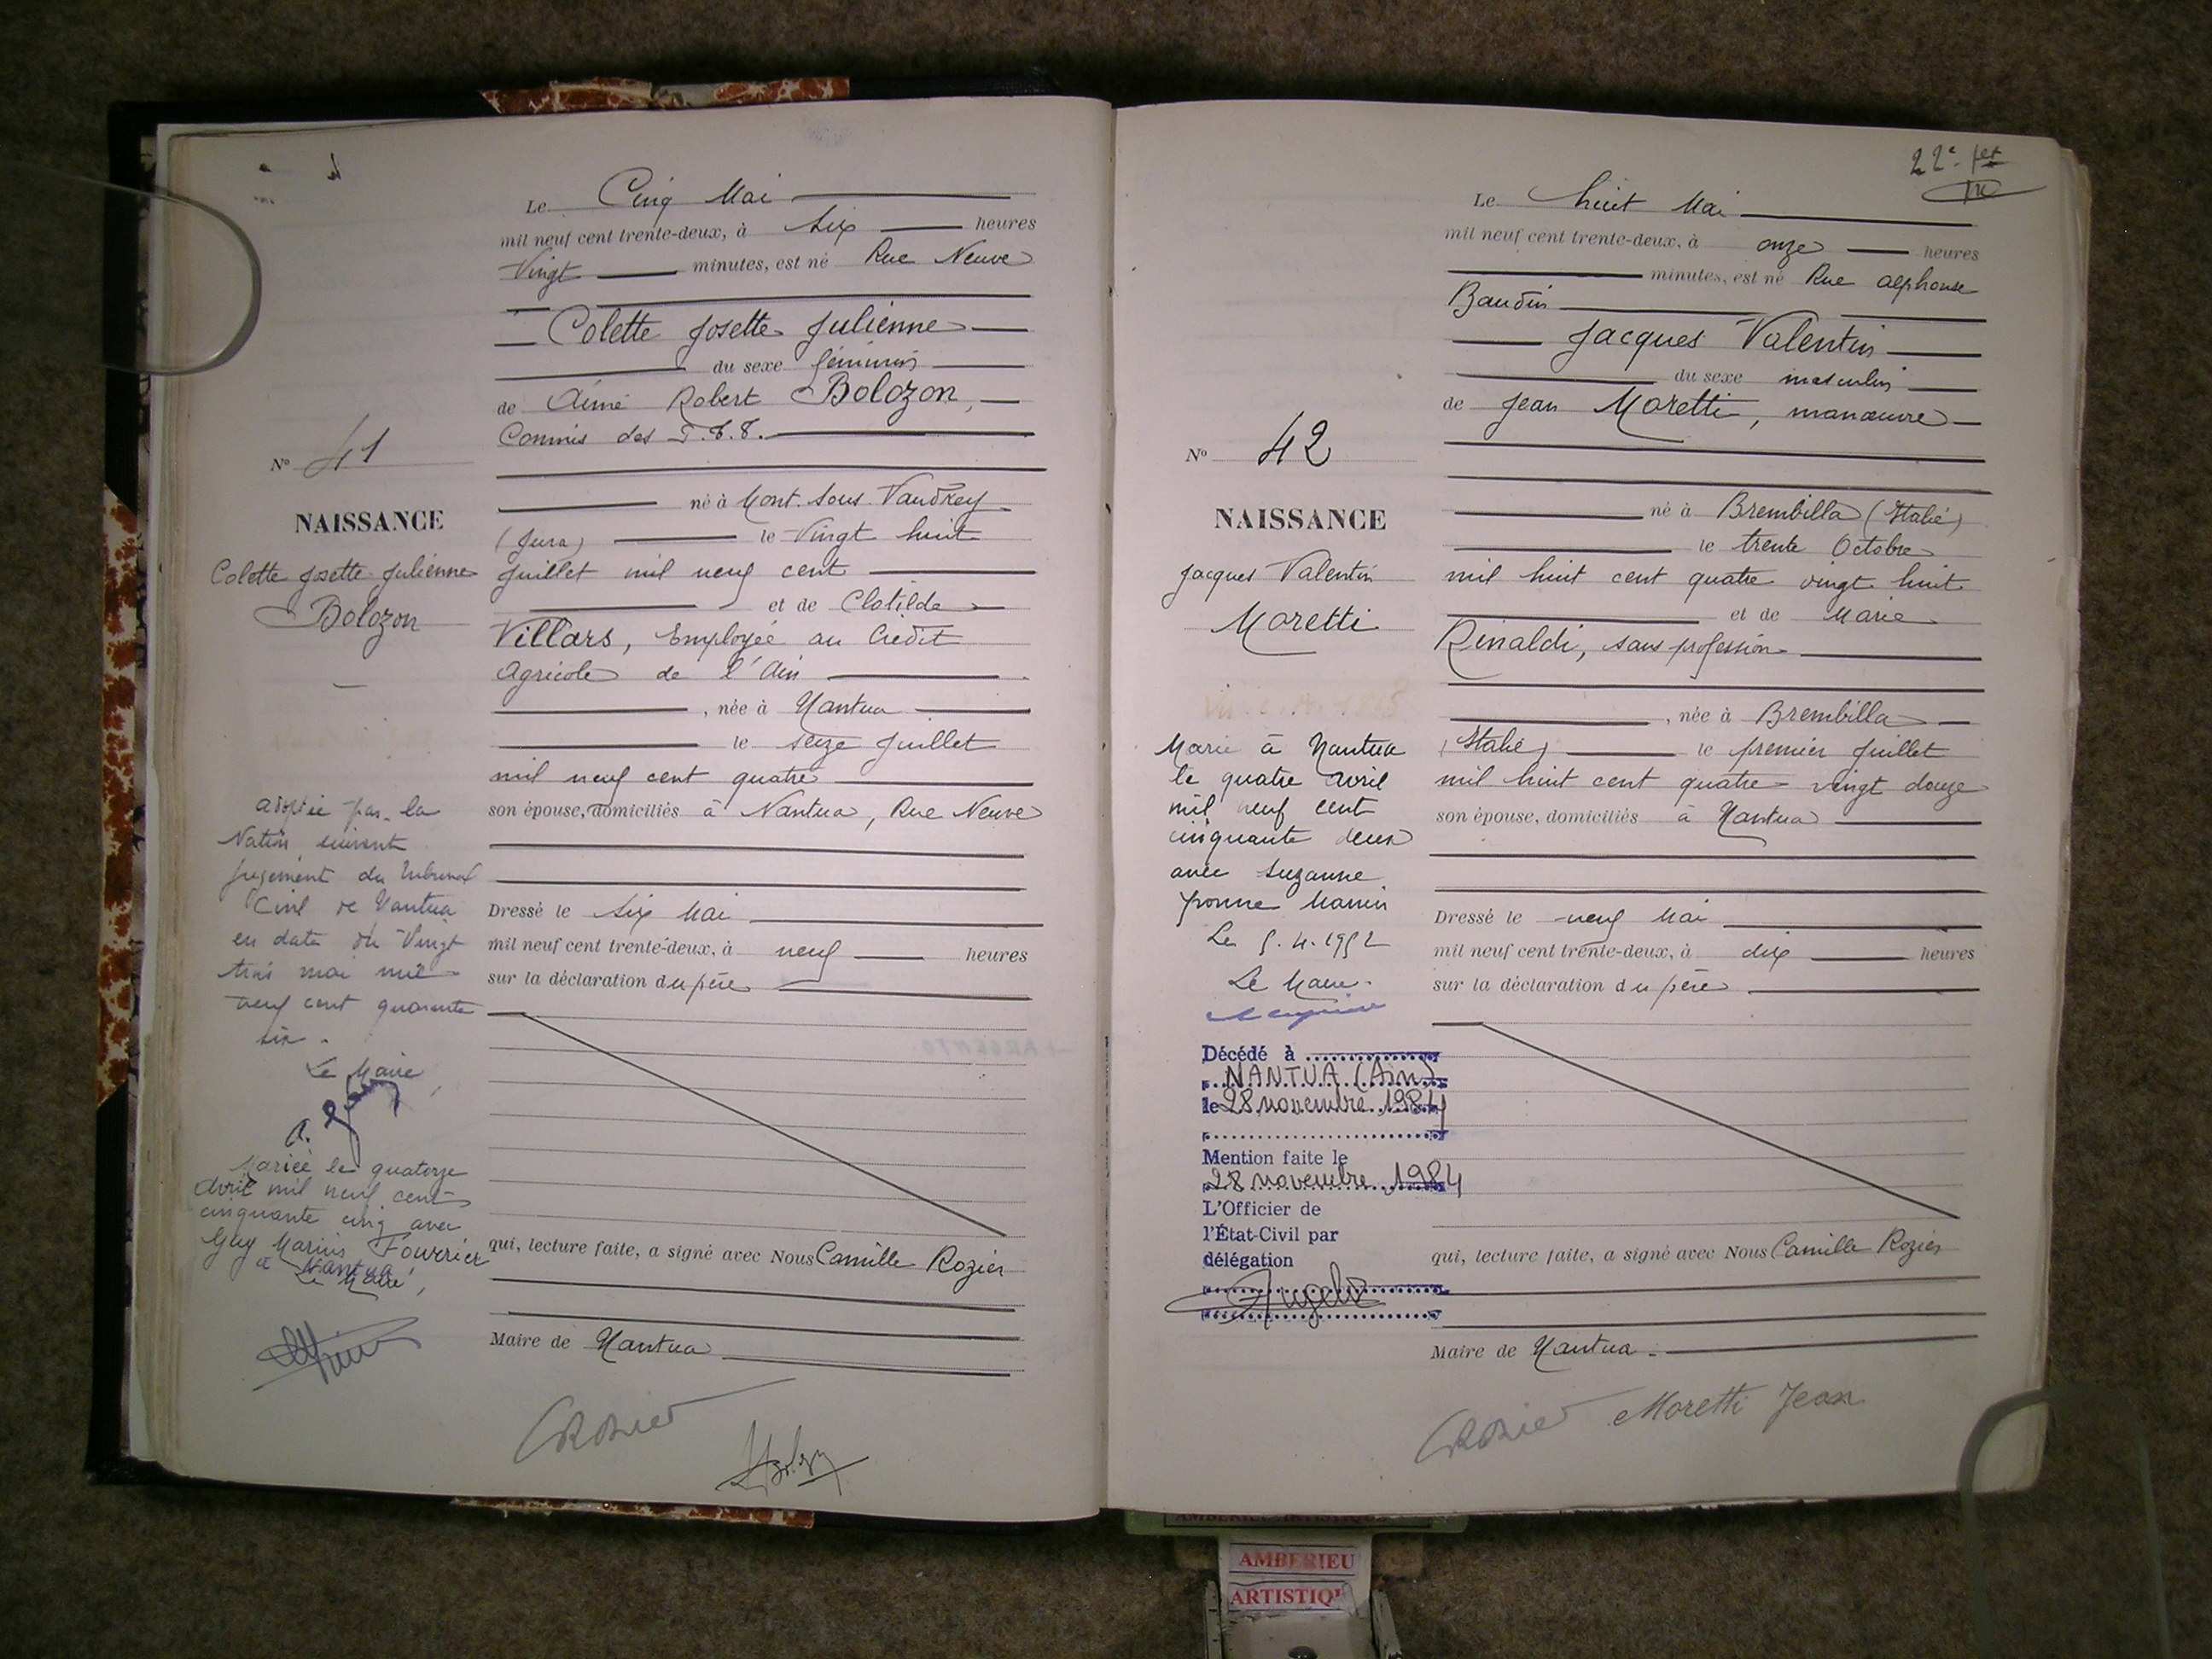 Le Cinq Mai
mil neuf cent trente-deux, à six heures
Vingt minutes, est né Rue Neuve
Colette Josette Julienne
du sexe féminin
de Aimé Robert Bolozon,
Commis des P.T.T.
né à Mont. sous. Vaudrey
(Jura) le Vingt huit
Juillet mil neuf cent
et de Clotilde
Villars, Employée au Crédit
Agricole de l'Ain
, née à Nantua
le seize Juillet
mil neuf cent quatre
son épouse, domiciliés à Nantua, Rue Neuve
Dressé le six Mai
mil neuf cent trente-deux, à neuf heures
sur la déclaration du père
qui, lecture faite, a signé avec Nous Camille Rozier
Maire de Nantua
CRozier
No 41
NAISSANCE
Colette Josette Julienne
Bolozon
adoptée par la
Nation suivant
jugement du Tribunal
Civil de Nantua
en date du Vingt
trois mai mil
neuf cent quarante
six.
Le Maire
Mariée le quatorze
Avril mil neuf cent
cinquante cinq avec
Guy Marius Fourrier
à Nantua
Le Maire,
22e fet
Le huit Mai
mil neuf cent trente-deux, à onze heures
minutes, est né Rue Alphonse
Baudin
Jacques Valentin
du sexe masculin
de Jean Moretti, manœuvre
né à Brembilla (Italie)
le trente Octobre
mil huit cent quatre vingt huit
et de Marie
Rinaldi, sans profession
, née à Brembilla
(Italie) le premier Juillet
mil huit cent quatre-vingt douze
son épouse, domiciliés à Nantua
Dressé le neuf Mai
mil neuf cent trente-deux, à dix heures
sur la déclaration du père
qui, lecture faite, a signé avec Nous Camille Rozier
Maire de Nantua.
CRozier Moretti Jean
No 42
NAISSANCE
Jacques Valentin
Moretti
Marié à Nantua
le quatre avril
mil neuf cent
cinquante deux
avec Suzanne
Yvonne Manin
Le 5.4.1952
Le Maire.
Décédé à
NANTUA (Ain)
le 28 novembre 1984
Mention faite le
28 novembre 1984
L'Officier de
l'État-Civil par
délégation
AMBERIEU
ARTISTIQ